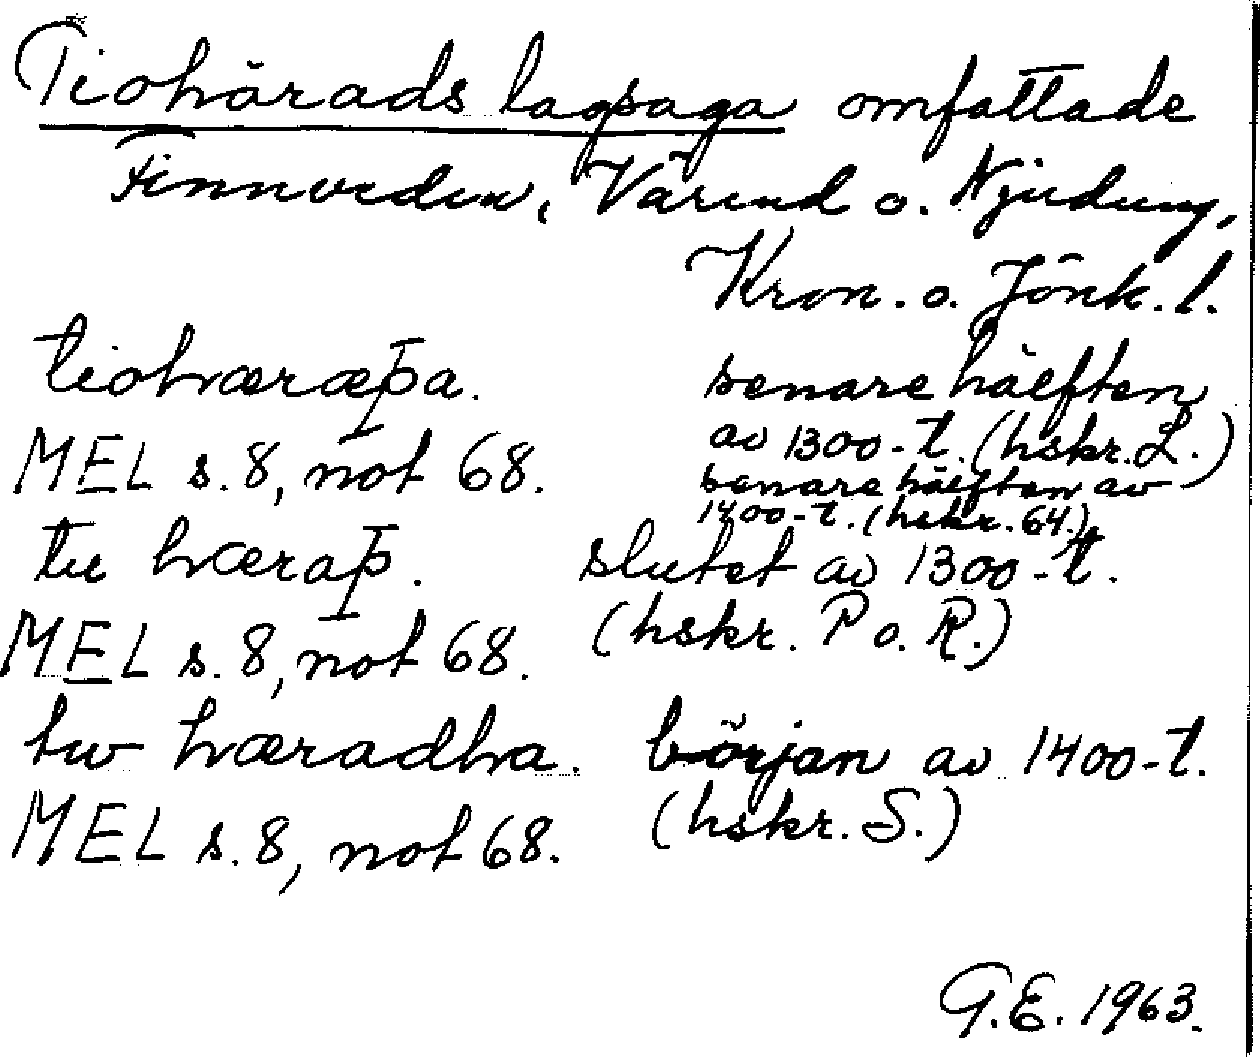 Tiohärads lagsaga omfattade
Finnveden, Värend o. Njudung,
Kron. o. Jönk. l.
tiohæræþa. senare hälften
av 1300-t. (hskr. L.)
MEL s. 8, not 68. senare hälften av
1400-t. (hskr. 64.)
tiu hæraþ. slutet av 1300-t.
MEL s. 8, not 68. (hskr. P o. R.)
tiw hæradha. början av 1400-t.
MEL s. 8, not 68. (hskr. S.)
G.E. 1963.